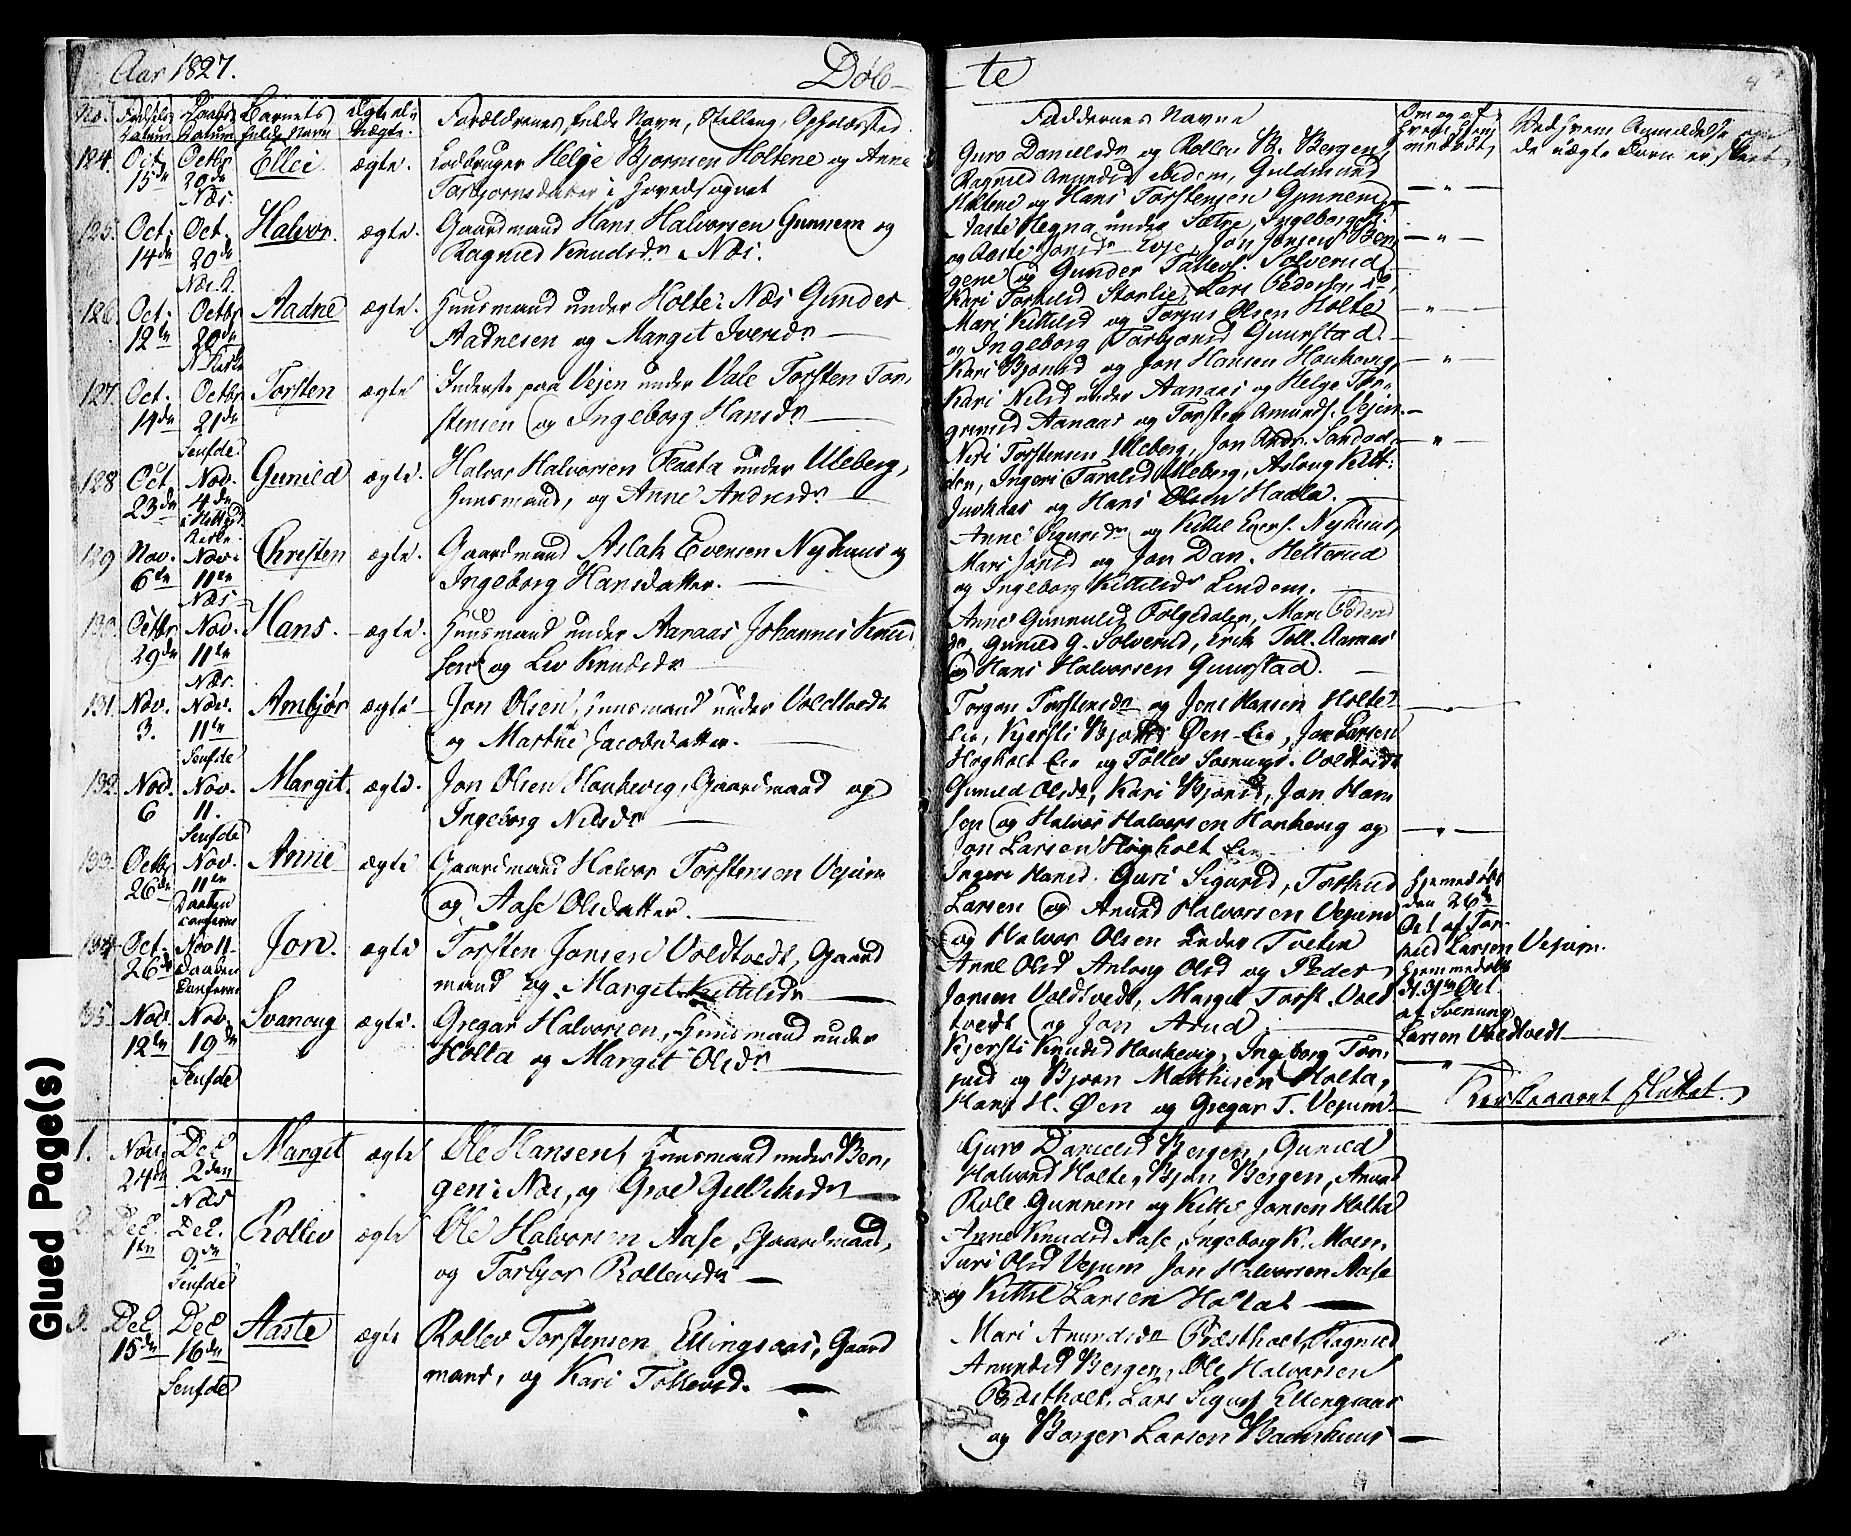 Aar 1827. Døb-
-te
4
No. Fødsels Datum Daabs Datum Barnets fulde Navn Ægte el. Uægte. Forældrenes fulde Navn, Stilling, Opholdssted.
Faddernes Navne
124. Oct. 15de Octbr 20de Næs. Ellie. ægte. Helje Bjørnsen Holtene og Anne
Torbjørnsdatter i Hovedsognet
Guro Danielsdr og Rollev B. Bergen,
Ragnild Amundsd ibidem, Guldmund
Holtene og Hans Torstensen Gunnem
125. Oct. 14de Oct. 20de Næs K. Halvor. ægte. Gaardmand Hans Halvorsen Gunnem og
Ragnild Knudsdr. Næs.
Aaste Hegna under Sætre, Ingeborg H.
og Aaste Jonsdr Evje, Jon Jonsen Ber-
gene og Gunder Tollefs. Solverud
126. Oct. 12te Octbr 20de N. Kirke Aadne ægte. Huusmand under Holte i Næs Gunder
Aadnesen og Margit Iversdr
Kari Torkilsd Storlie, Lars Pedersen
Mari Kittilsd og Torjus Olsen Holte
og Ingeborg Torbjørnsd Guurstad.
127. Oct. 14de Octbr 21de Seufde. Torsten ægte Inderste paa Vejen under Vale Torsten Tor-
stensen og Ingeborg Hansdr
Kari Bjørnsd og Jon Hansen Haukevig,
Kari Nilsd under Aanaas og Helge Tor-
grimsd Aanaas og Torsten Amunds. Vejem
128 Oct. 23de Nov. 4de i Hitterd. Kirke. Gunild ægte. Halvor Halvorsen Flaata under Uleberg,
Huusmand, og Anne Andersdr
Niri Torstensen Uleberg, Jon Andr. Sandod-
den, Ingeri Taralsd Uleberg, Asloug Kitt-
Juvkaas og Hans Olsen Haata.
129 Nov. 6te Nov. 11te Næs Christen ægte. Gaardmand Aslak Evensen Nyhuus og
Ingeborg Hansdatter.
Anne Sigursdr og Kittil Egers. Nyhuus,
Mari Jonsd og Jon Dan. Helterud
og Ingeborg Kittilsdr Lindem.
130. Octbr 29de Nov. 11te Næs. Hans. ægte. Huusmand under Aanaas Johannes Knud-
sen og Liv Knudsdr
Anne Gunnulsd Folgedalen, Mari Pedersd
dr, Gunild G. Solverud, Erik Toll. Aanaas
og Hans Halvorsen Guurstad.
131. Nov. 3. Nov. 11te Seufde Ambjør ægte Jon Olsen, Huusmand under Voldtvedt
og Marthe Jacobsdatter.
Torgon Torstensdr og Jens Hansen Holte
Eie, Kjersti Bjørnsd Øen-Eie, Jon Larsen
Hogholt Eie og Tollev Svenungs. Voldtvedt
132. Nov. 6 Nov. 11. Seufde Margit. ægte. Jon Olsen Haukevig, Gaardmand og
Ingeborg Nilsdr
Gunild Olsdr, Kari Bjørnsd, Jon Han-
sen og Halvor Halvorsen Haukevig og
Jon Larsen Høgholt Eie
133. Octbr 26de Nov. 11te Daaben confirm. Anne ægte Gaardmand Halvor Torstensen Vejum
og Aase Olsdatter.
Ingeri Hansd. Guri Sigursd, Torkild
Larsen og Amund Halvorsen Vejum
og Halvor Olsen under Tveten
Hjemmedøbt
den 26de
Oct af Tor-
kild Larsen Vejum.
134 Oct. 26de Nov 11. Daaben Confirm. Jon. ægte Torsten Jonsen Voldtvedt, Gaard
mand og Margit Kittilsdr
Anne Olsd Aslaug Olsd og Peder
Jonsen Voldtvedt, Margit Torst. Vold
tvedt og Jon Arud
Hjemmedøbt
d. 31te Oct
af Svenung
Larsen Voldtvedt
135. Nov. 12te Nov. 19de Seufde Svanoug ægte. Gregar Halvorsen, Huusmand under
Holta og Margit Olsdr
Kjersti Knudsd Haukevig, Ingeborg Tor-
jusd og Bjørn Mathisen Holta,
Hans H. Øen og Gregar T. Vejum.
Kirkeaaret sluttet.
1. Nov. 24de Dec 2den Næs Margit ægte Ole Hansen, Huusmand under Ber-
gen i Næs, og Groe Gulliksdr
Guro Danielsd Bergen, Gunild
Halvorsd Holte, Bjørn Bergen, Amund
Roll. Gunnem og Kittil Jonsen Holta
2. Dec. 1te Dec. 9de Seufde Rollev ægte Ole Halvorsen Aase, Gaardmand,
og Torbjør Rollevsdr
Anne Knudsd Aase, Ingeborg K. Moen.
Turi Olsd Vejum Jon Halvorsen Aase
og Kittil Larsen Holtat
3. Dec 15de Dec 16de Seufde Aaste ægte Rollev Torstensen Ellingsaas, Gaard
mand, og Kari Tollevsd.
Mari Amundsdr Præstholt, Ragnild
Amundsd Bergen, Ole Halvorsen
Præstholt, Lars Sigurs Ellengsaas
og Borger Larsen Baarshuus
Glued Page(s)